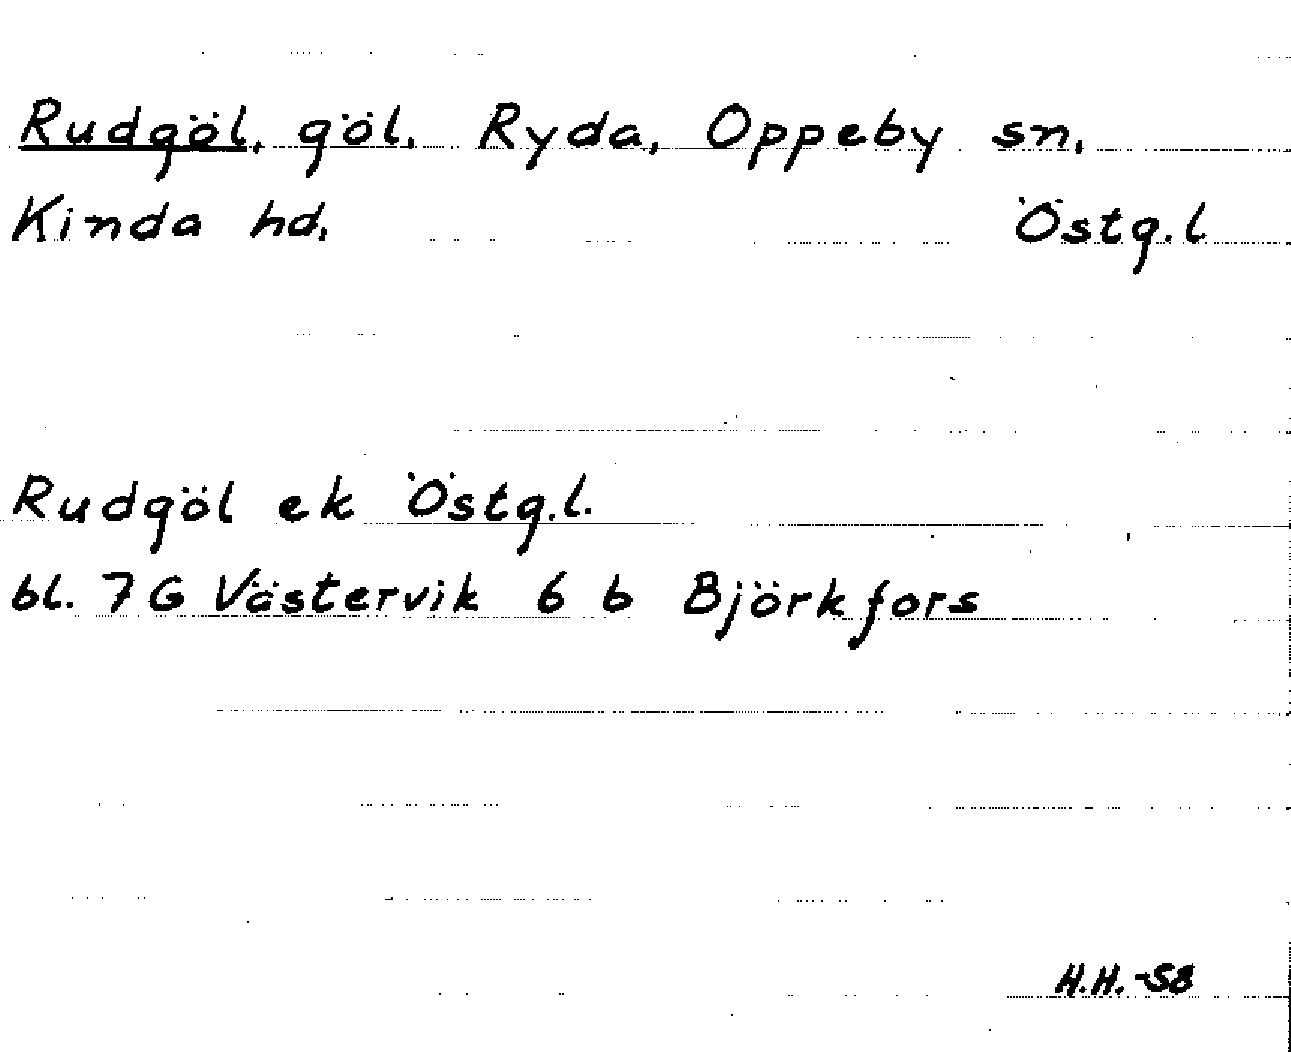 Rudgöl, göl. Ryda, Oppeby sn.
Kinda hd. Östg.l
Rudgöl ek Östg.l.
bl. 7G Västervik 6 b Björkfors
H.H. -58